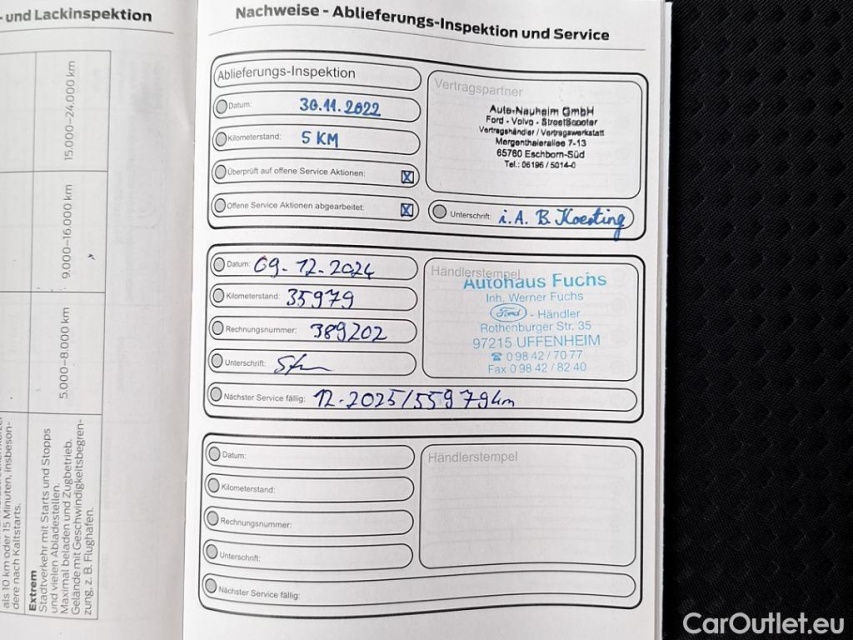 - und Lackinspektion
15.000–24.000 km
9.000–16.000 km
5.000–8.000 km
als 10 km oder 15 Minuten, insbeson-
dere nach Kaltstarts.
Extrem
Stadtverkehr mit Starts und Stopps
und vielen Abladestellen.
Maximal beladen und Zugbetrieb.
Gelände mit Geschwindigkeitsbegren-
zung, z. B. Flughafen.
Nachweise - Ablieferungs-Inspektion und Service
Ablieferungs-Inspektion
Datum: 30.11.2022
Kilometerstand: 5 KM
Überprüft auf offene Service Aktionen: X
Offene Service Aktionen abgearbeitet: X
Vertragspartner
Auto-Nauheim GmbH
Ford - Volvo - StreetScooter
Vertragshändler / Vertragswerkstatt
Mergenthalerallee 7-13
65760 Eschborn-Süd
Tel.: 06196 / 5014-0
Unterschrift: i.A. B. Koesting
Datum: 09-12-2024
Kilometerstand: 35979
Rechnungsnummer: 389202
Unterschrift:
Nächster Service fällig: 12-2025/55979km
Händlerstempel
Autohaus Fuchs
Inh. Werner Fuchs
Ford - Händler
Rothenburger Str. 35
97215 UFFENHEIM
☎ 0 98 42 / 70 77
Fax 0 98 42 / 82 40
Datum:
Kilometerstand:
Rechnungsnummer:
Unterschrift:
Nächster Service fällig:
Händlerstempel
CarOutlet.eu